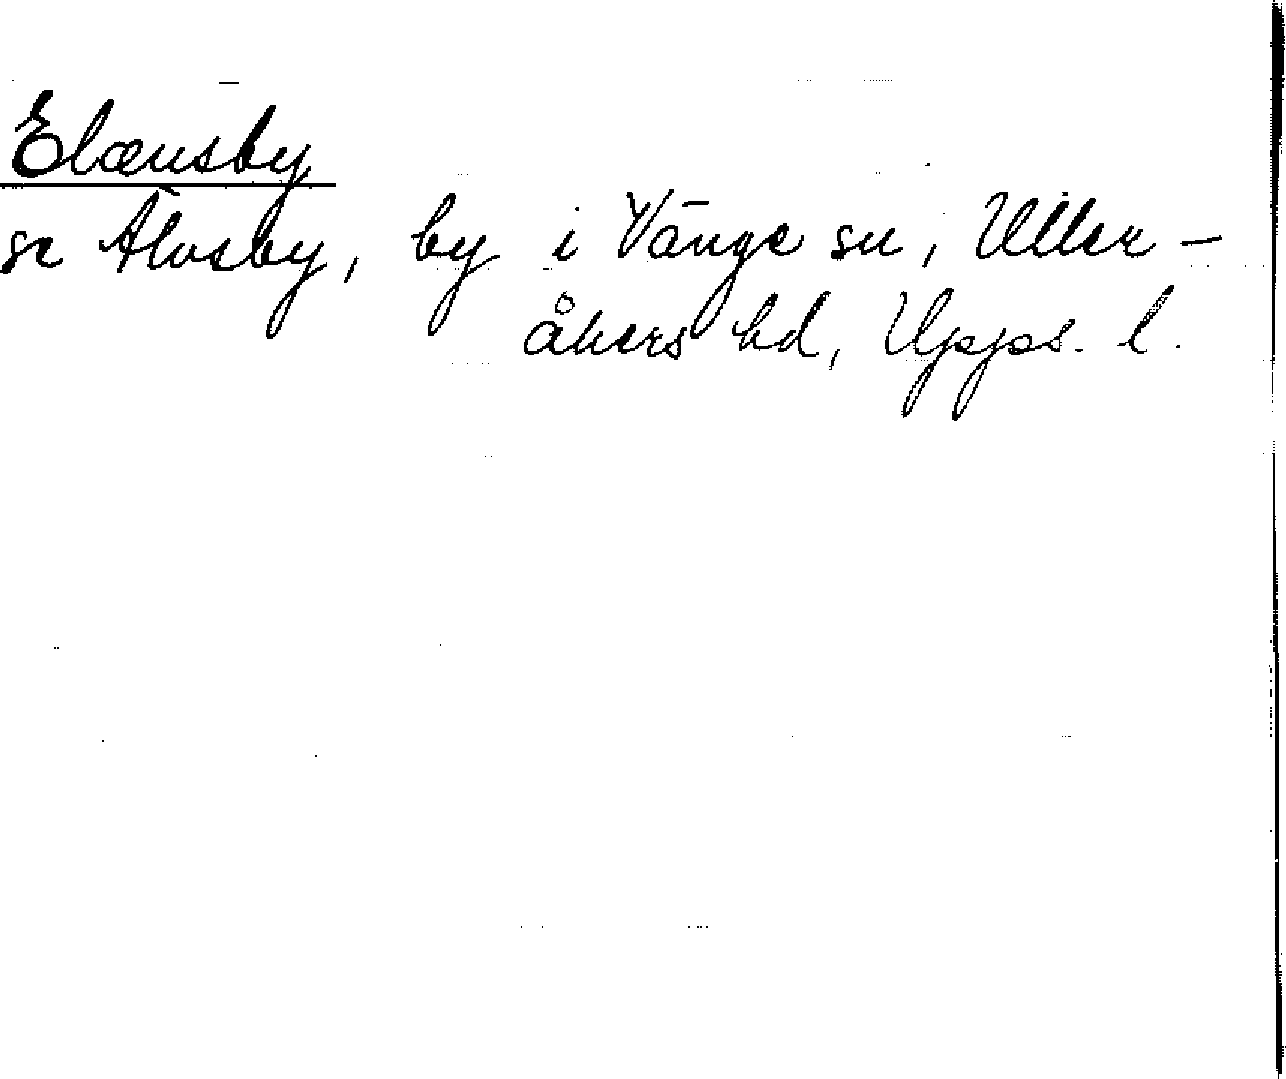 Elænsby
se Älvsby, by i Vänge sn, Uller-
åkers hd, Upps. l.